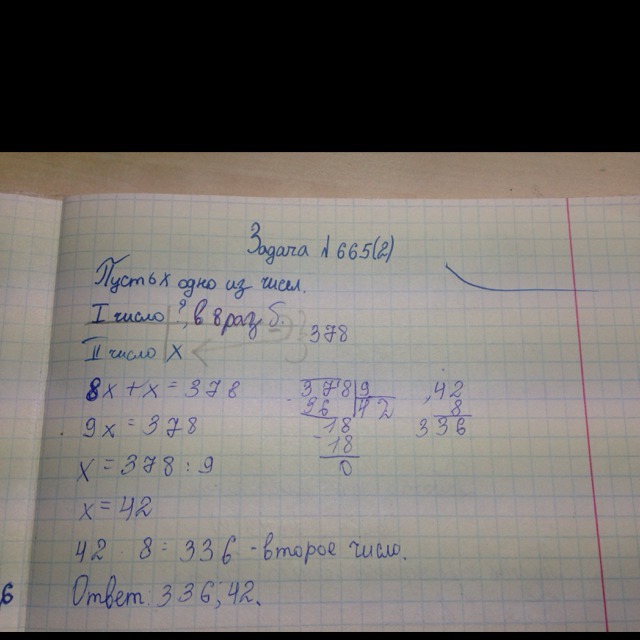 Задача №665(2)
Пусть x одно из чисел.
I число ?, в 8 раз б.
378
II число x
8x + x = 378
9x = 378
x = 378 : 9
x = 42
378 9
36 42
18
18
0
42
8
336
42 · 8 = 336 - второе число.
Ответ. 336, 42.
6